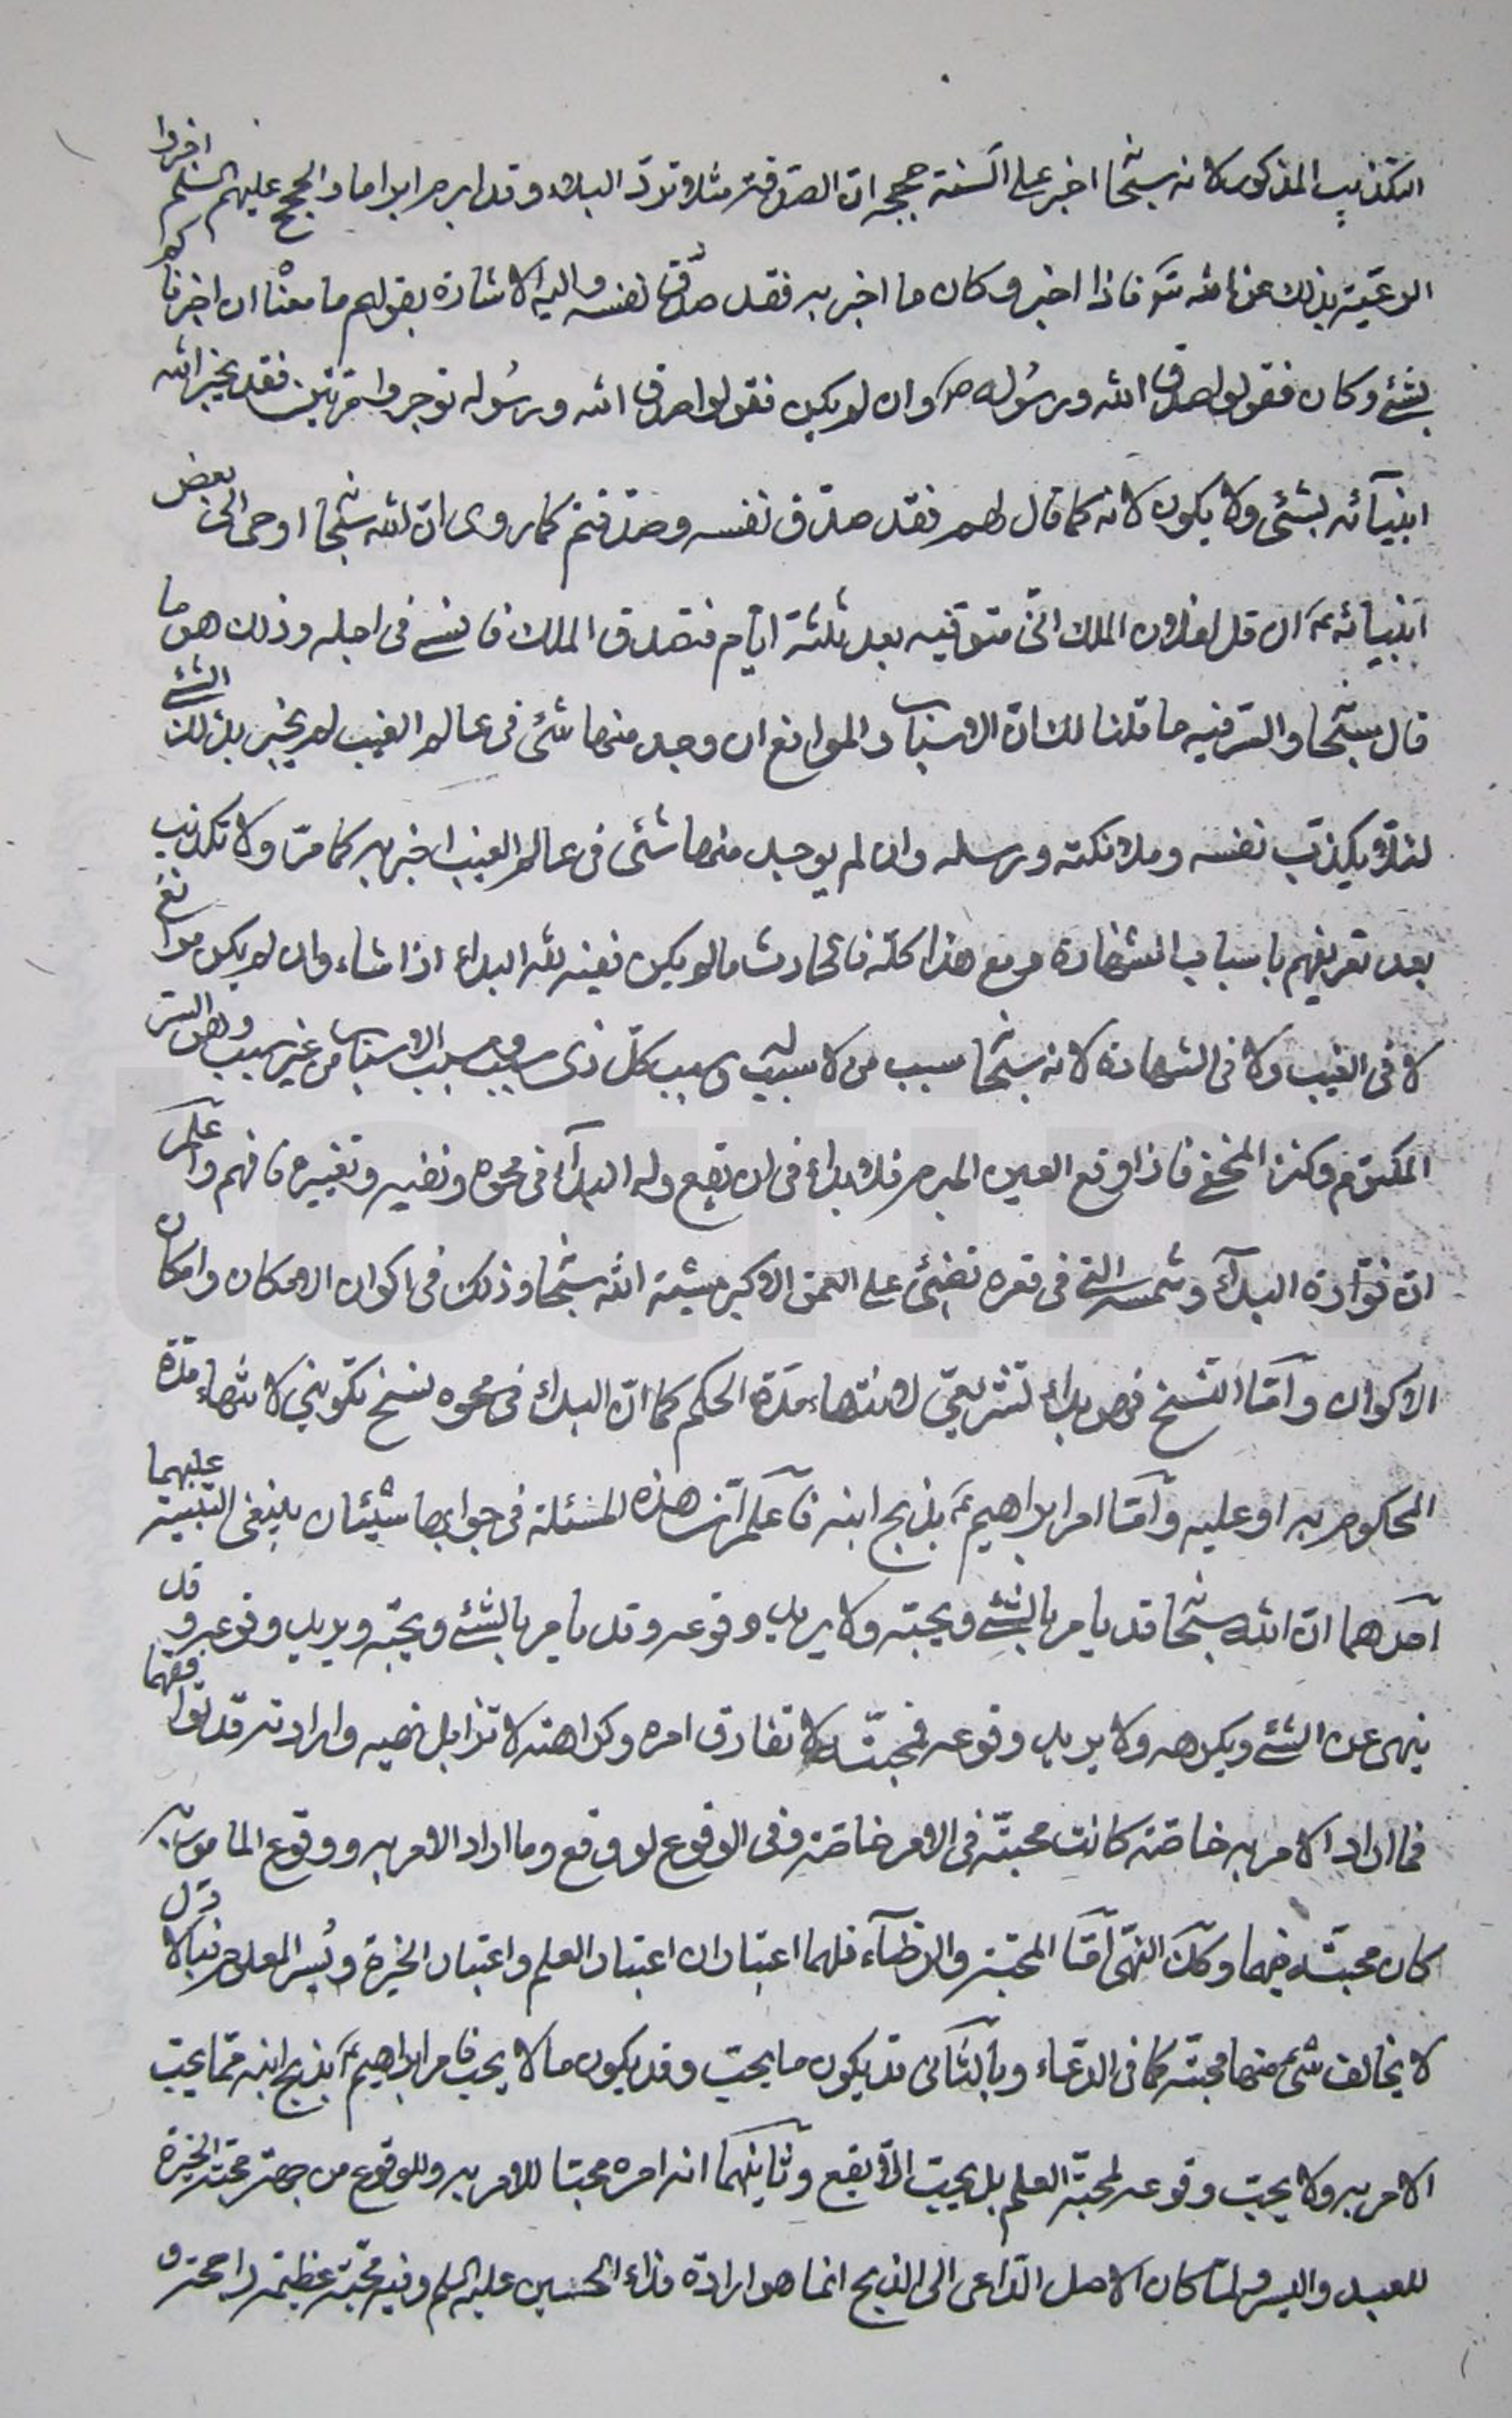 التكذيب المذكور لانه سبحٰا اخبر على السنة حججه ان الصدقة مثلا تردّ البلاء وقد ابرم ابراما والحجج عليهم السلم اخبروا
الرعيّة بذلك عن الله تَعَ فاذا اخبر وكان ما اخبر به فقد صدّق نفسه واليه الاشارة بقولهم ما معنٰاه ان اخبرناكم
بشئ وكان فقولوا صدق الله ورسُوله ص وان لم يكن فقولوا صدق الله ورسُوله توجروا مرتين فقد يخبر الله
انبيآئه بشئ ولا يكون لانه كما قال لهم فقد صدّق نفسه وصدّقتم كما روى انّ الله سبحٰا اوحى الى بعض
انبيائه ءَ ان قل لفلان الملك انّى متوفّيه بعد ثلثة ايّام فتصدق الملك فانسئ فى اجله وذلك هو ما
قال سبحٰا والسّر فيه ما قلنا لك انّ الاسباب والموانع ان وجد منها شئ فى عالم الغيب لم يخبر بذلك الشئ
لئلّا يكذّب نفسه وملائكته ورسله وان لم يوجد منها شئ فى عالم الغيب اخبر به كما مرّ ولا تكذيب
بعد تعريفهم باسباب الشهادة ومع هذا كلّه فالحادث ما لم يكن ففيه لله البداء اذا شاء وان لم يكن موانع
لا فى الغيب ولا فى الشهادة لانه سبحٰا سبب من لا سبب له وسبب كلّ ذى سبب ومسبب الاسباب من غير سبب وهو السّر
المكتوم وكنز المخفى فاذا وقع العين المبرم فلا بداء فى ان يقع وله البدآء فى محوه وتغييره فافهم واعلم
انّ فوّارة البدآء وشمسه التى فى قعره تضئ على العمق الاكبر مشية الله سبحٰا وذلك فى اكوان الامكان وامكان
الاكوان وَامّا النّسخ فهو بداء تشريعىّ لانتهاء مدّة الحكم كما انّ البداء فى محوه نسخ تكوينى لانتهاء مدّة
المحكوم به او عليه وَامّا امر ابراهيم ءَ بذبح ابنه فاعلم انّ هذه المسئلة فى جوابها شيئان ينبغى التنبيه عليهما
احدهما انّ الله سبحٰا قد يامر بالشئ ويحبّه ولا يريد وقوعه وقد يامر بالشئ ويحبّه ويريد وقوعه وقد
ينهى عن الشئ ويكرهه ولا يريد وقوعه فمحبّته لا تفارق امره وكراهته لا تزايل نهيه وارادته قد توافقهما
فما اراد الامر به خاصّة كانت محبّته فى الامر خاصّة وفى الوقوع لو وقع وما اراد الامر به ووقوع المامور به
كان محبّته فيهما وكذلك النّهى امّا المحبّة والرضآء فلهما اعتباران اعتبار العلم واعتبار الخيرة ويُسر المعلوم فبالاوّل
لا يخالف شئ منها محبّته كما فى الدّعاء وبالثّانى قد يكون ما يحبّ وقد يكون ما لا يحب فامر ابراهيم ءَ بذبح ابنه ممّا يحبّ
الامر به ولا يحبّ وقوعه لمحبّة العلم بل يحبّ الّا يقع وثانيهما انه امره محبّا للامر به وللوقوع من جهة محبّة الخيرة
للعبد واليسر ولمّا كان الاصل الدّاعى الى الذبح انما هو ارادة فداء الحسين عليه السلم وفيه محبّة عظيمة راجحة و